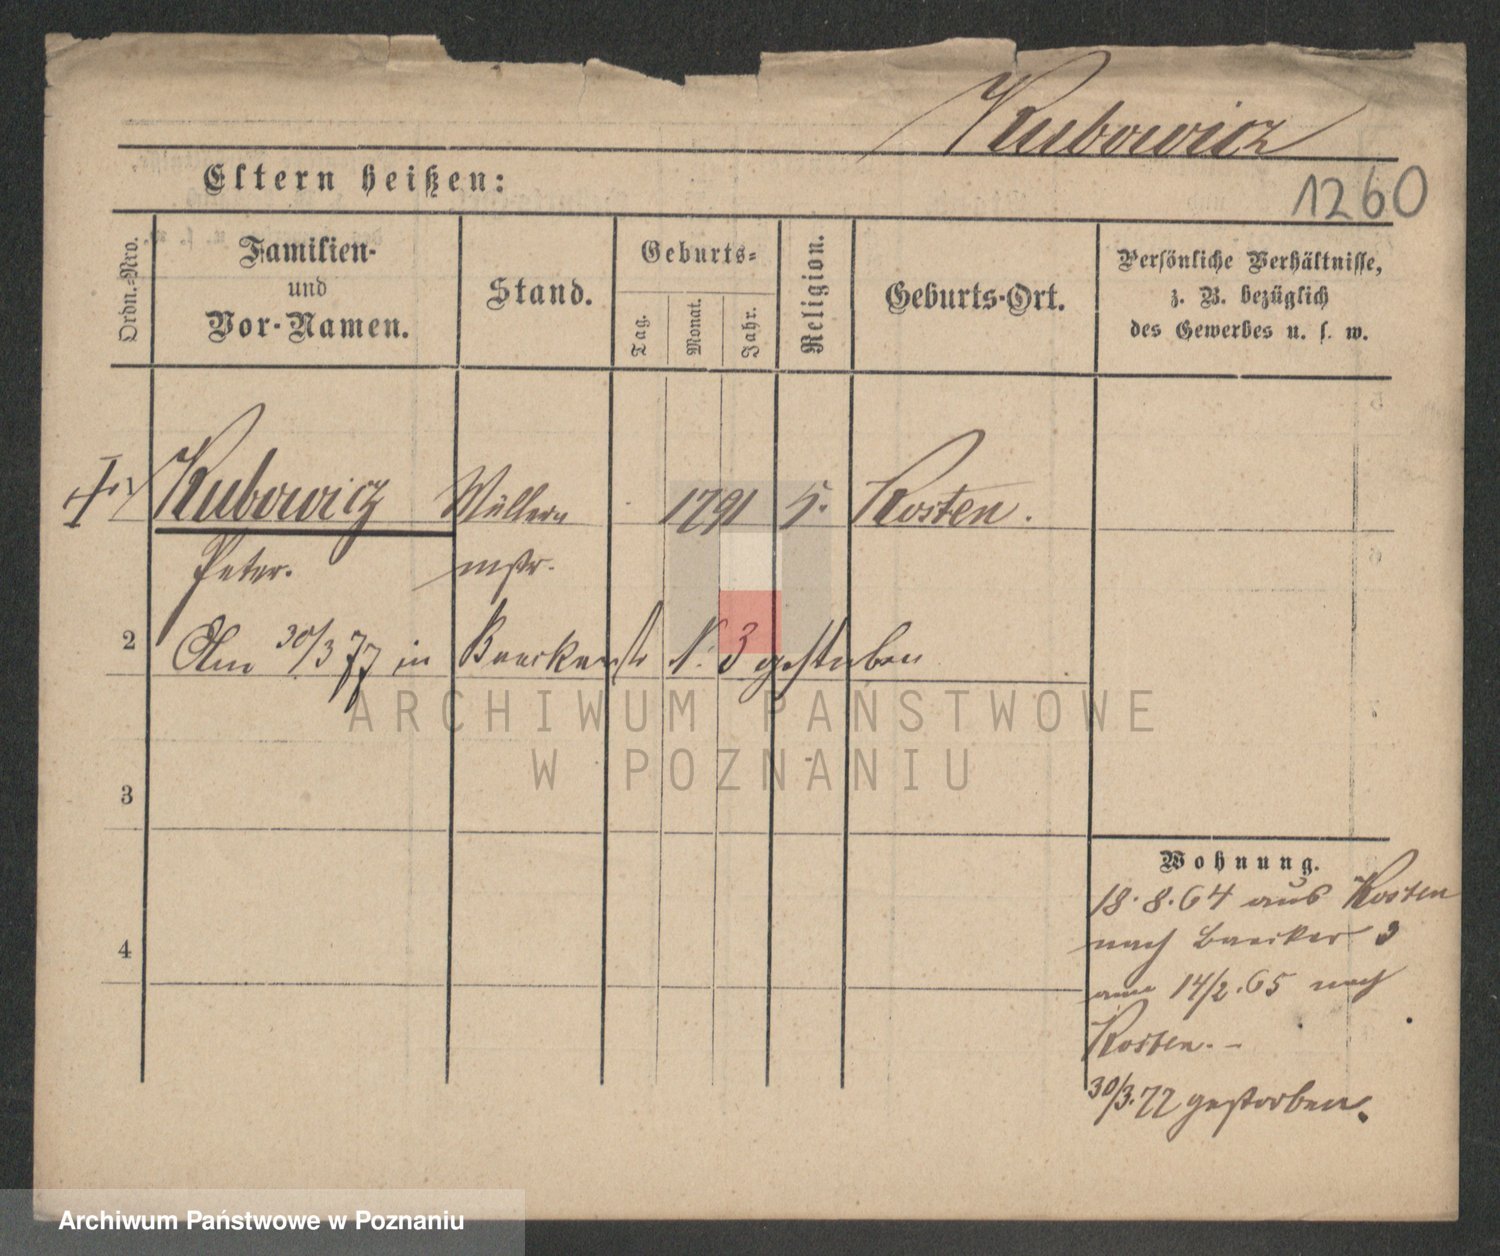 Kubowicz
Eltern heißen:
1260
Ordn.-Nro.
Familien-
und
Vor-Namen.
Stand.
Geburts-
Tag.
Monat.
Jahr.
Religion.
Geburts-Ort.
Persönliche Verhältnisse,
z. B. bezüglich
des Gewerbes u. s. w.
1 Kubowicz 1791 Kosten.
Peter. mstr.
2 Am 30/3 77 in N. 3 gestorben
3
4
Wohnung.
18.8.64 aus Kosten
nach Baecker 3
am 14/2.65 nach
Kosten. -
30/3.77 gestorben.
ARCHIWUM PAŃSTWOWE
W POZNANIU
Archiwum Państwowe w Poznaniu